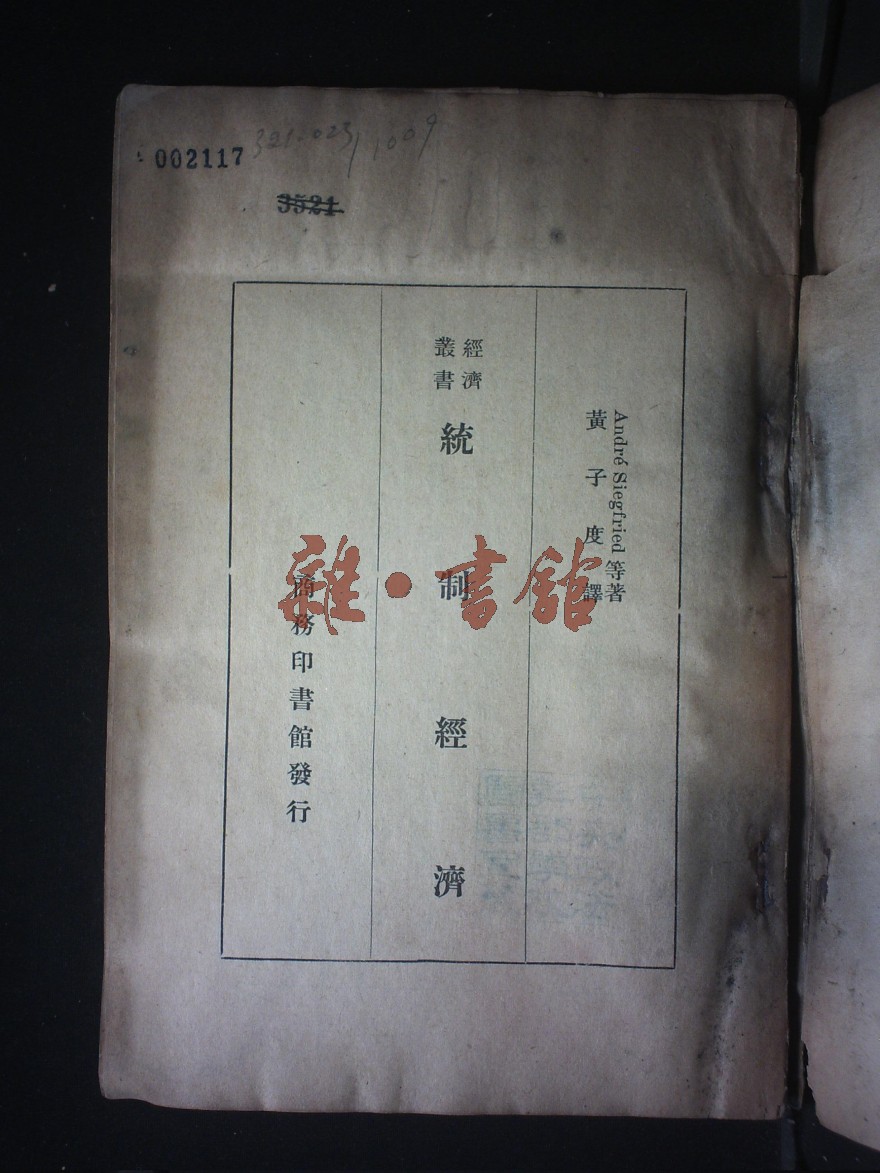 002117
321.023/1009
3521
André Siegfried 等著
黃子度譯
經濟
叢書
統制經濟
商務印書館發行
雜·書館